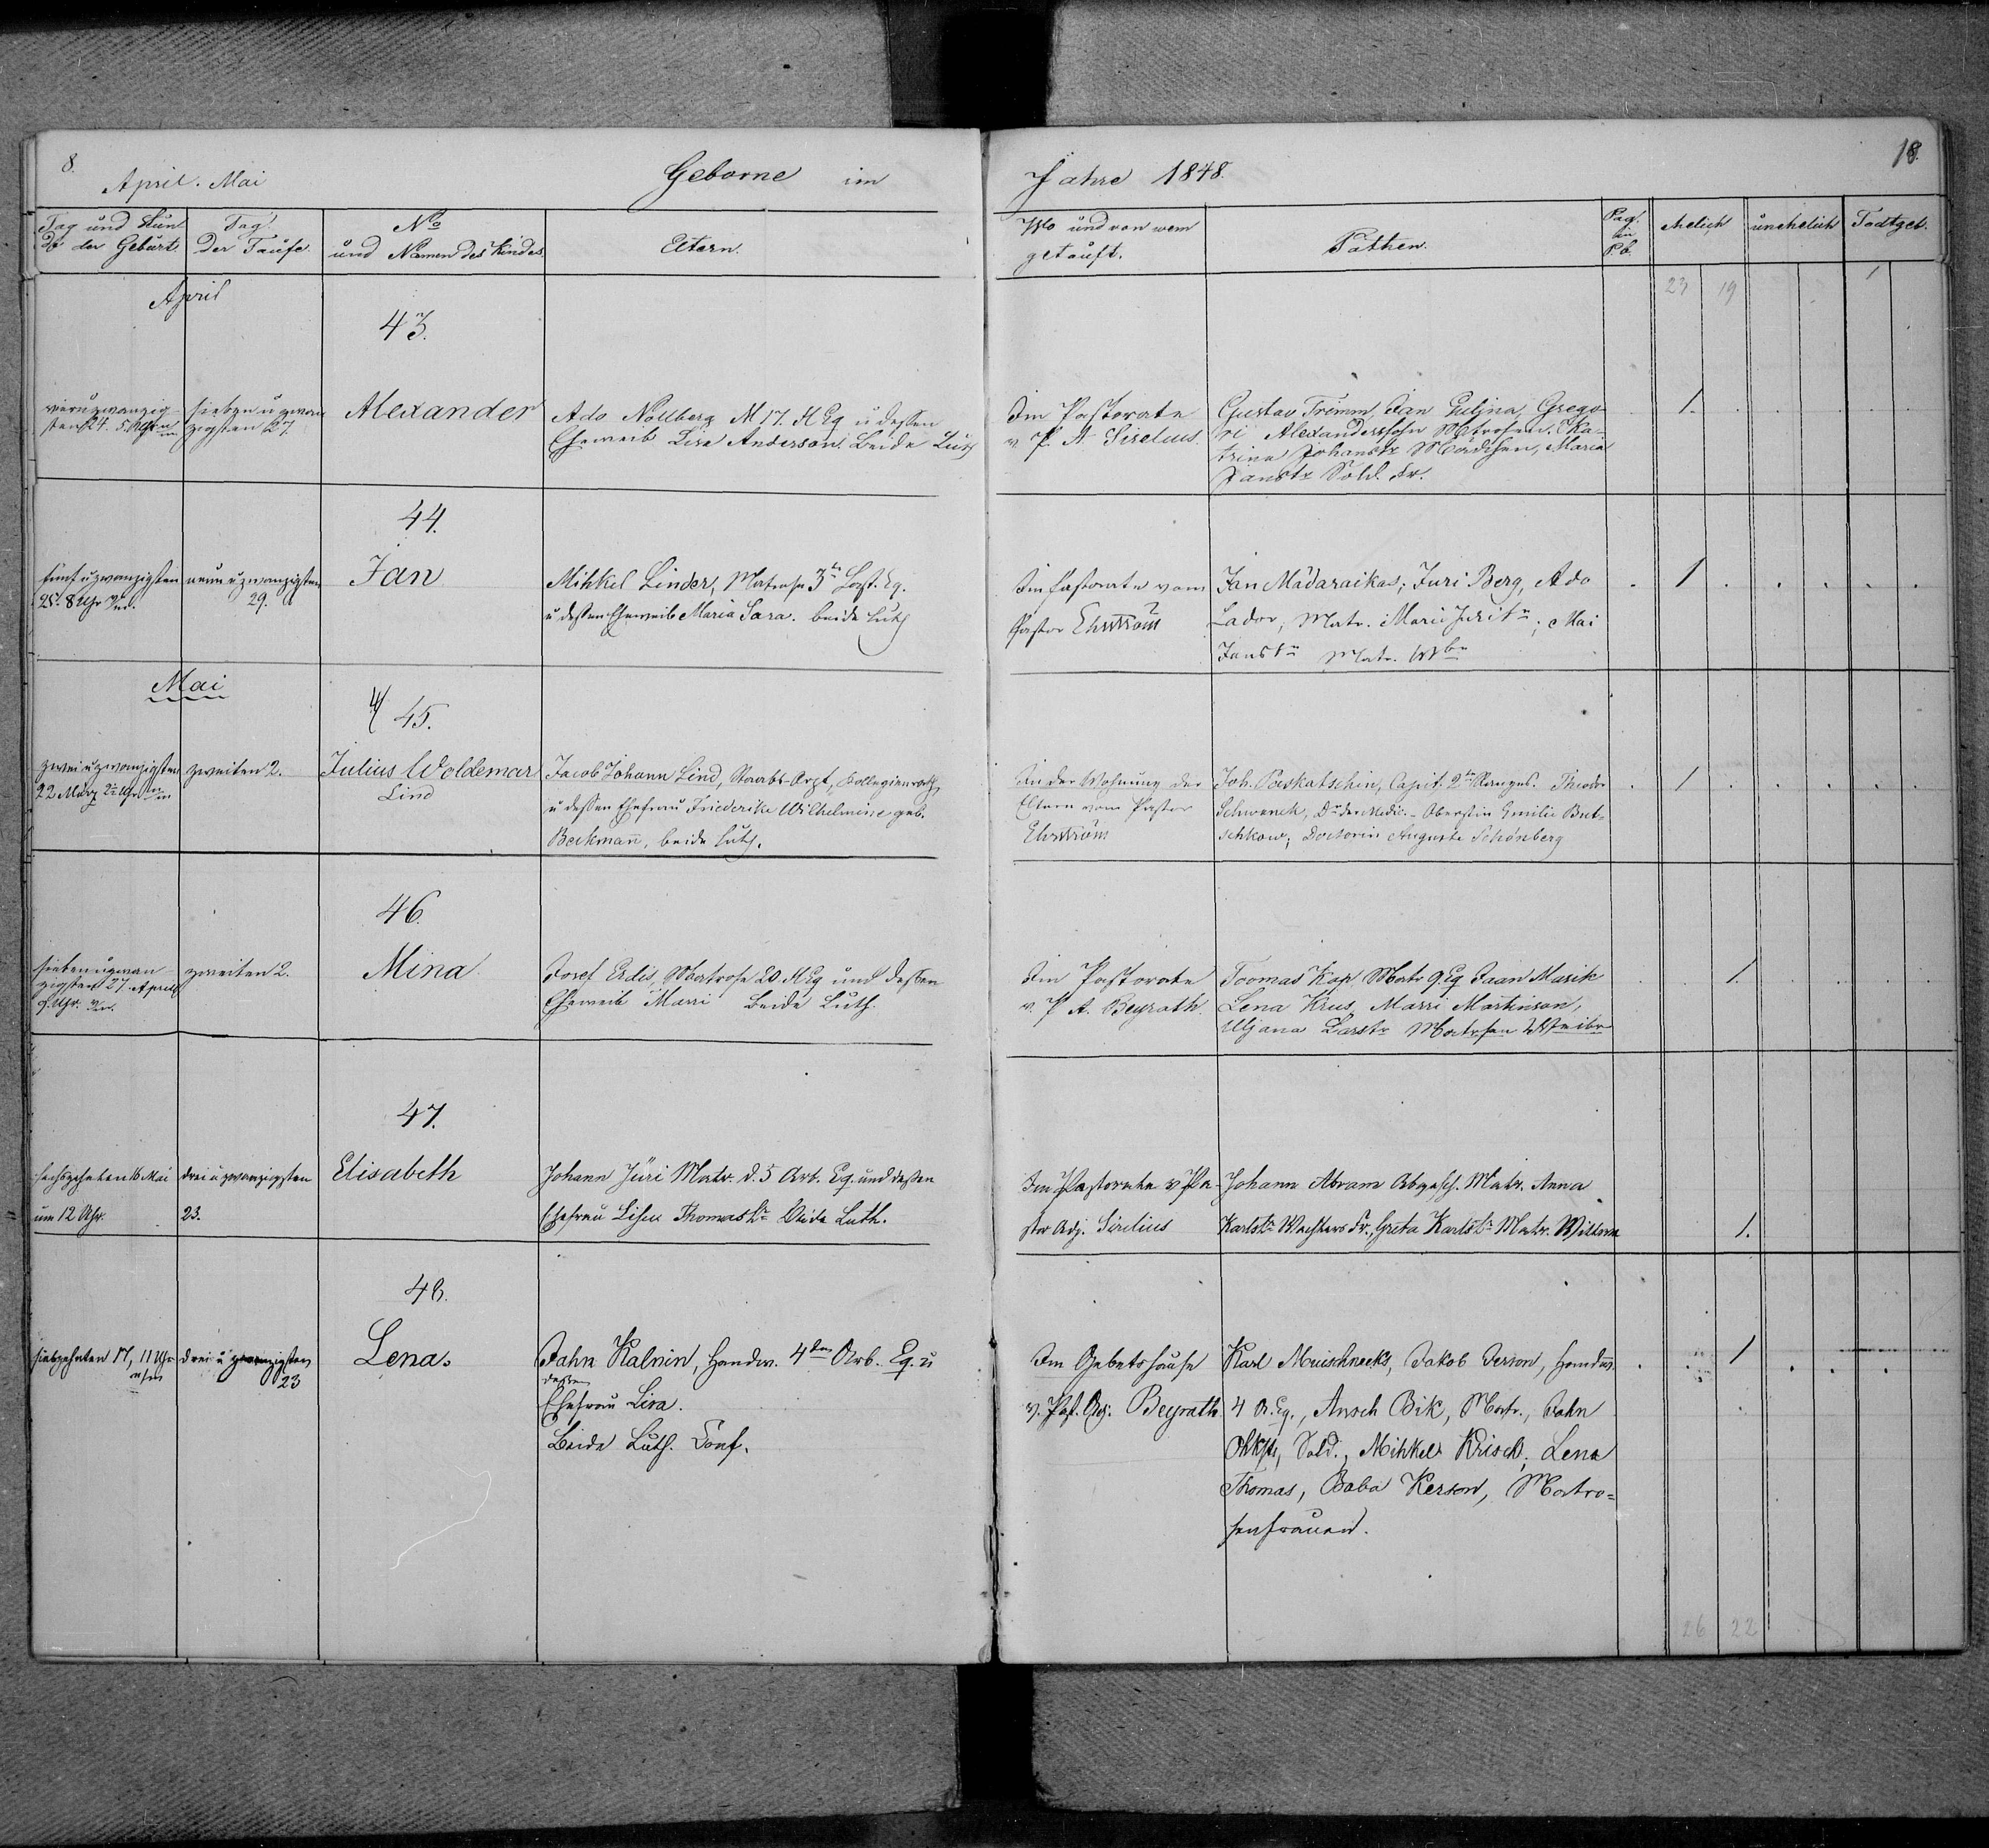 8.
April. Mai
Geborne im
Jahre 1848.
18.
Tag und Stun
de der Geburt
Tag
der Taufe.
No
und Namen des Kindes.
Eltern.
Wo und von wem
getauft.
Pathen.
Pag.
in
P.b.
ehelich
unehelich
Todtgeb.
23 19
1
April
43.
vierundzwanzig-
sten 24. 5 Uhr
sieben u zwan
zigsten 27.
Alexander
Ado Nollberg M 17. Eq u dessen
Eheweib Lisa Anderson. Beide Luth
Im Pastorate
v P. A Sirelius.
Gustav Trimm, Jan Guljna, Grego-
ri Alexanderssohn Matrosen. Ka-
trina Johanstr Mädchen, Maria
Janstr Sold. Fr.
1.
44.
fünf u zwanzigsten
25. 8 Uhr
neun u zwanzigsten
29.
Jan
Mihkel Linder, Matrose 3ter Eq.
u dessen Eheweib Maria Sara. beide Luth
Im Pastorate vom
Pastor Ehrström
Jan Mädaraikas, Juri Berg, Ado
Lador, Matr. Marii Juritr; Mai
Janstr Matr. Wbr
1
Mai
45.
zwei u zwanzigsten
22 März 2 Uhr
zweiten 2.
Julius Woldemar
Lind
Jacob Johann Lind, Staabs-Arzt, Kollegienrath,
u dessen Ehefrau Friederike Wilhelmine geb.
Beckmañ, beide Luth.
In der Wohnung der
Eltern vom Pastor
Ehrström
Joh. Poskatschin, Capit. 2ten Ranges. Theodor
Schwenck, Dr der Medic. - Oberstin Emilie But-
schkow, Doctorin Auguste Schönberg
1
46.
sieben u zwan-
zigsten 27. April
9 Uhr
zweiten 2.
Mina
Josef Erdis, Matrose 20. Eq und dessen
Eheweib Marri Beide Luth.
Im Pastorate
v. P A. Beyrath.
Toomas Kap, Matr 9. Eq Jaan Masik
Lena Krus, Marri Martinson,
Uljana Larstr Matrosen Weiber
1.
47.
sechszehnten 16 Mai
um 12 Uhr.
drei u zwanzigsten
23.
Elisabeth
Johann Jüri Matr. d. 5 Arb. Eq. und dessen
Ehefrau Lisu Thomastr Beide Luth.
Im Pastorate v Pa-
stor Adj. Sirelius
Johann Abram Abgesch. Matr. Anna
Karlstr Wächters Fr., Greta Karlstr Matr. Wittwe
1.
48.
siebzehnten 17, 11 Uhr
drei u zwanzigsten
23
Lena.
Jahn Kalnin, Handw. 4ten Arb. Eq. u
dessen
Ehefrau Lisa.
Beide Luth. Conf.
Im Gebetshause
v. Past. Adj. Beyrath
Karl Muischneeks, Jakob Jerson, Handw.
4 A. Eq., Ansch Bik, Matr., Jahn
Sold., Mihkel Krisch, Lena
Thomas, Baba Kerson, Matro=
senfrauen.
1
26 22